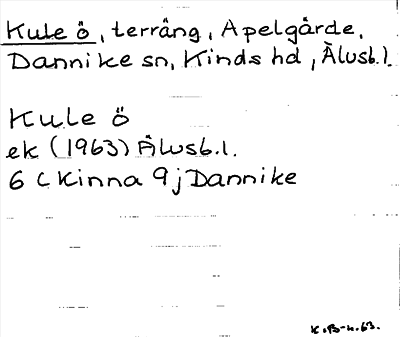 Kule ö, terräng, Apelgårde,
Dannike sn, Kinds hd, Älvsb.l.
Kule ö
ek (1963) Älvsb.l.
6 C Kinna 9j Dannike